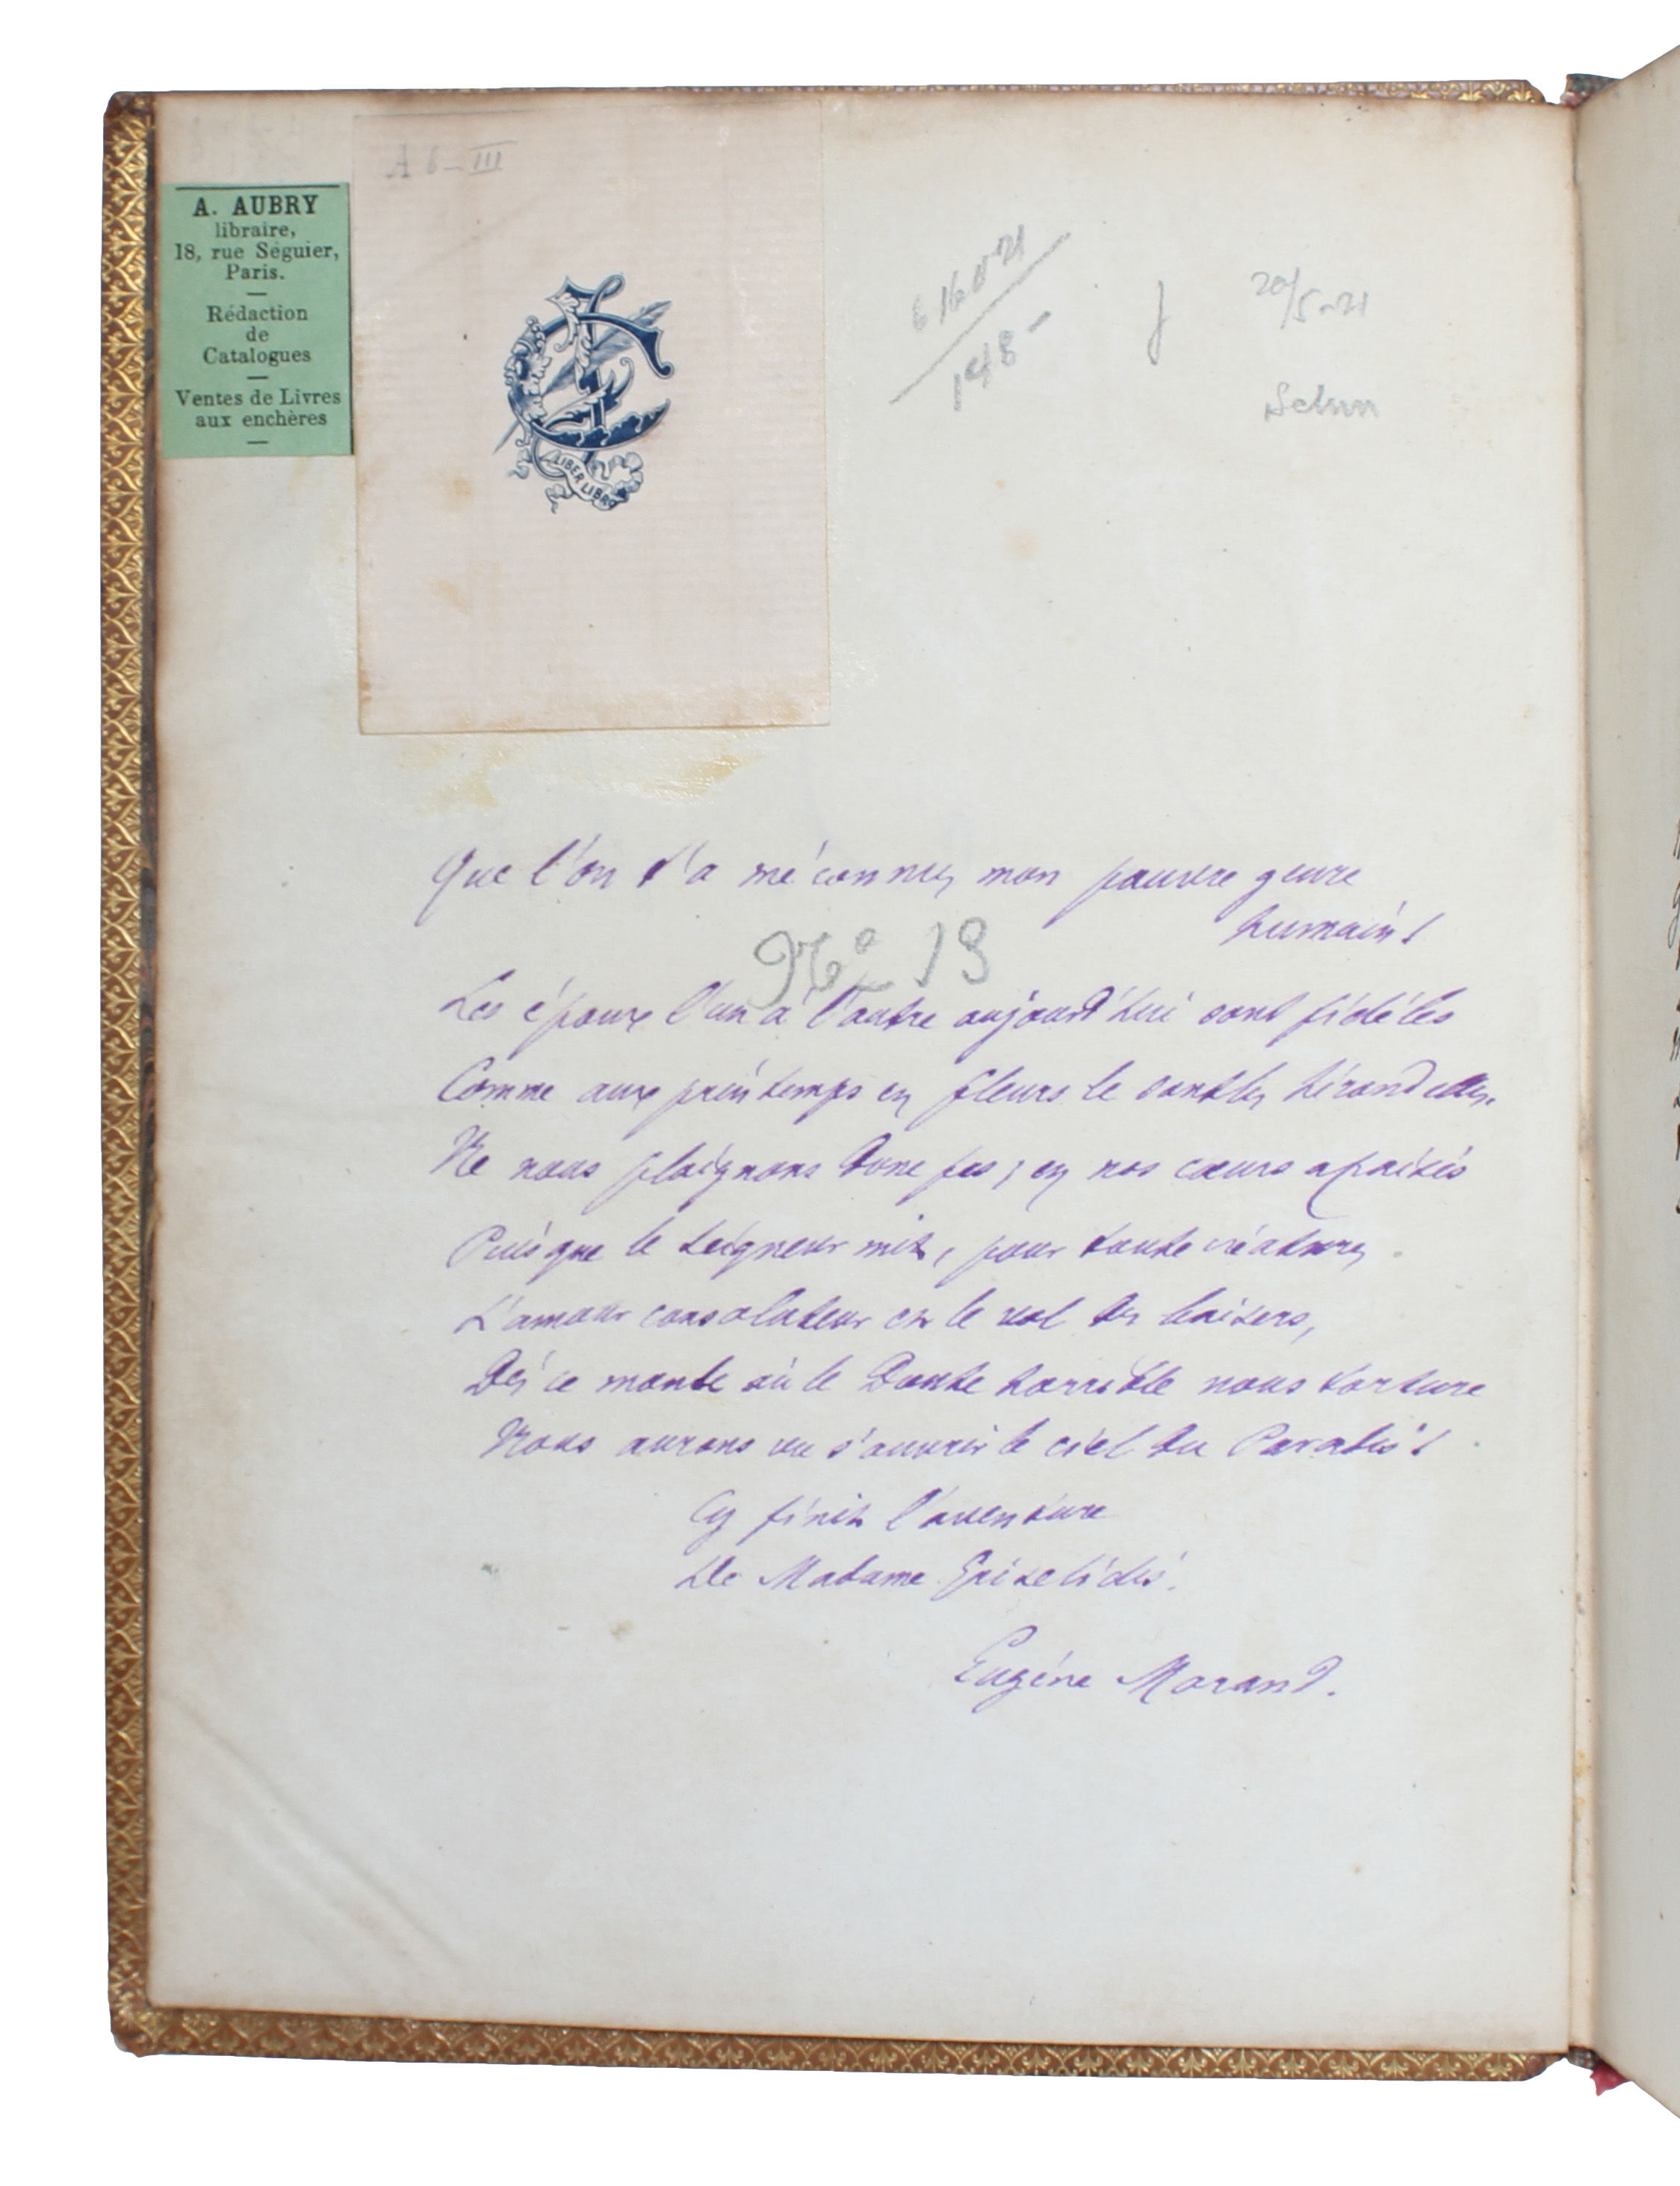 A. AUBRY
libraire,
18, rue Séguier,
Paris.
Rédaction
de
Catalogues
Ventes de Livres
aux enchères
A 6 – III
LIBER LIBRO
148 –
20/5-21
Que l'on t'a méconnu, mon pauvre genre
humain !
No 19
Les époux l'un à l'autre aujourd'hui sont fidèles
Comme aux printemps en fleurs le sont les hirondelles.
Ne nous plaignons donc pas ; en nos cœurs apaisés
Puisque le Seigneur mit, pour toute créature,
L'amour consolateur et le vol des baisers,
Dès ce monde où le Doute horrible nous torture
Nous aurons vu s'ouvrir le ciel du Paradis !
Cy finit l'aventure
De Madame Griselidis.
Eugène Morand.